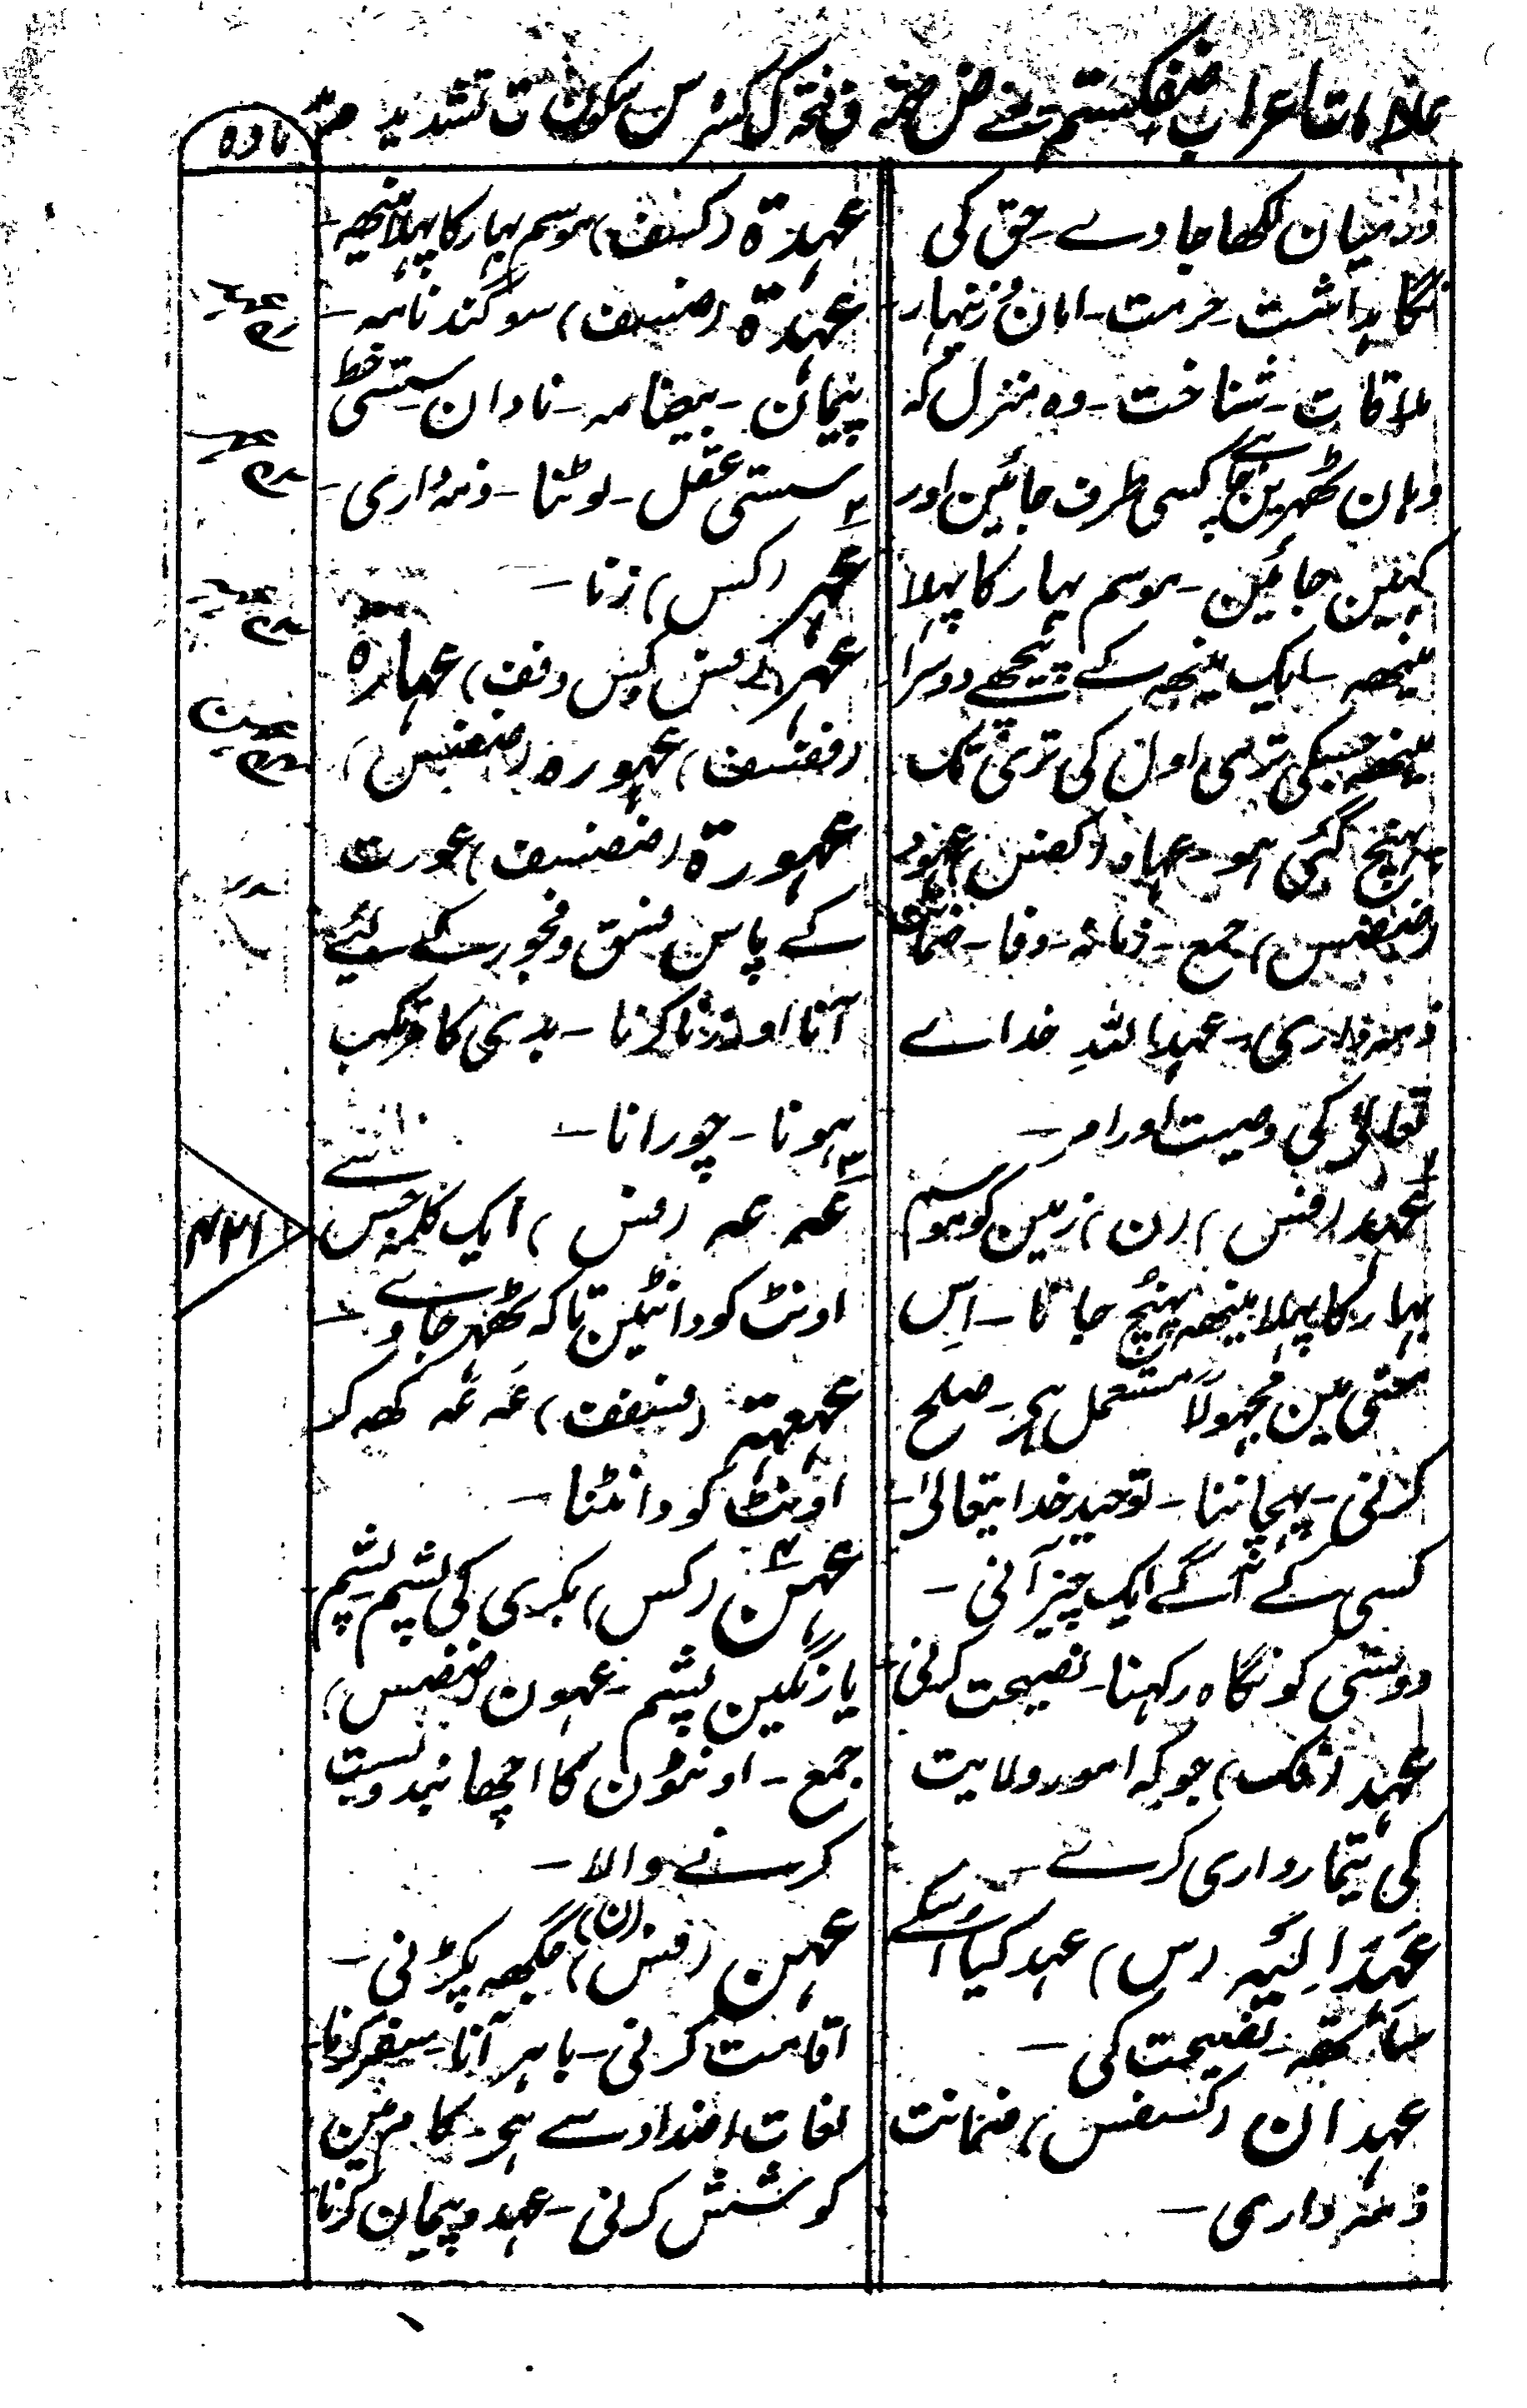 علامات اعراب ضفکستم یعنے ض ضمہ ف فتحہ ک کسر س سکون ت تشدید م مد
مادہ
درمیان لکھا جاوے۔ حق کی
نگاہداشت۔ حرمت۔ امان و زنہار۔
ملاقات۔ شناخت۔ وہ منزل کہ
وہان ٹھہرین جب کسی طرف جائین اور
کہین جائین۔ موسم بہار کا پہلا
مینھہ۔ ایک مینھہ کے پیچھے دوسرا
مینھہ جسکی تری اول کی تری تک
پہنچ گئی ہو۔ عہاد (کفس) عہود
(ضضس) جمع۔ زمانہ۔ وفا۔ ضمان
ذمہ داری۔ عہد اللہِ خداے
تعالیٰ کی وصیت اور امر۔
عہد (فس) (ن) زمین کو موسم
بہار کا پہلا مینھہ پہنچ جانا۔ اِس
معنی مین مجہولاً مستعمل ہی۔ صلح
کرنی۔ پہچاننا۔ توحید خدایتعالیٰ۔
کسی کے آگے ایک چیز آنی۔
دوستی کو نگاہ رکہنا۔ نصیحت کرنی
عہد (فک) جو کہ امور ولایت
کی تیمارداری کرے۔
عَہَدَ اِلَیہِ (س) عہد کیا اسکے
ساتھہ۔ نصیحت کی۔
عہدان (کسفس) ضمانت
ذمہ داری۔
عہدۃ (کسف) موسم بہار کا پہلا مینھہ۔
عہدۃ (ضسف) سوگند نامہ۔
پیمان۔ بیضامہ۔ نادان سستی خط
سستی عقل۔ لوٹنا۔ ذمہ داری۔
عہر (کس) زنا۔
عہر (فس وکس وفف) عہارۃ
(ففسف) عہورہ (ضضس)
عہورۃ (ضضسف) عورت
کے پاس فسق و فجور کے لئے
آنا اور زنا کرنا۔ بدی کا مرتکب
ہونا۔ چورانا۔
عہ عہ (فس) ایک کلمہ جس سے
اونٹ کو دانٹین تاکہ ٹھہر جاوے۔
عہعہۃ (فسفف) عَہ عَہ کھہ کر
اونٹ کو دانٹنا۔
عہن (کس) بکری کی پشم پشم
یا رنگین پشم۔ عہون (ضضس)
جمع۔ اونٹون کا اچھا بندوبست
کرنے والا۔
عہن (فس) (ن) جگھہ پکڑنی۔
اقامت کرنی۔ باہر آنا۔ سفر کرنا
لغات اضداد سے ہی۔ کام مین
کوشش کرنی۔ عہد و پیمان کرنا